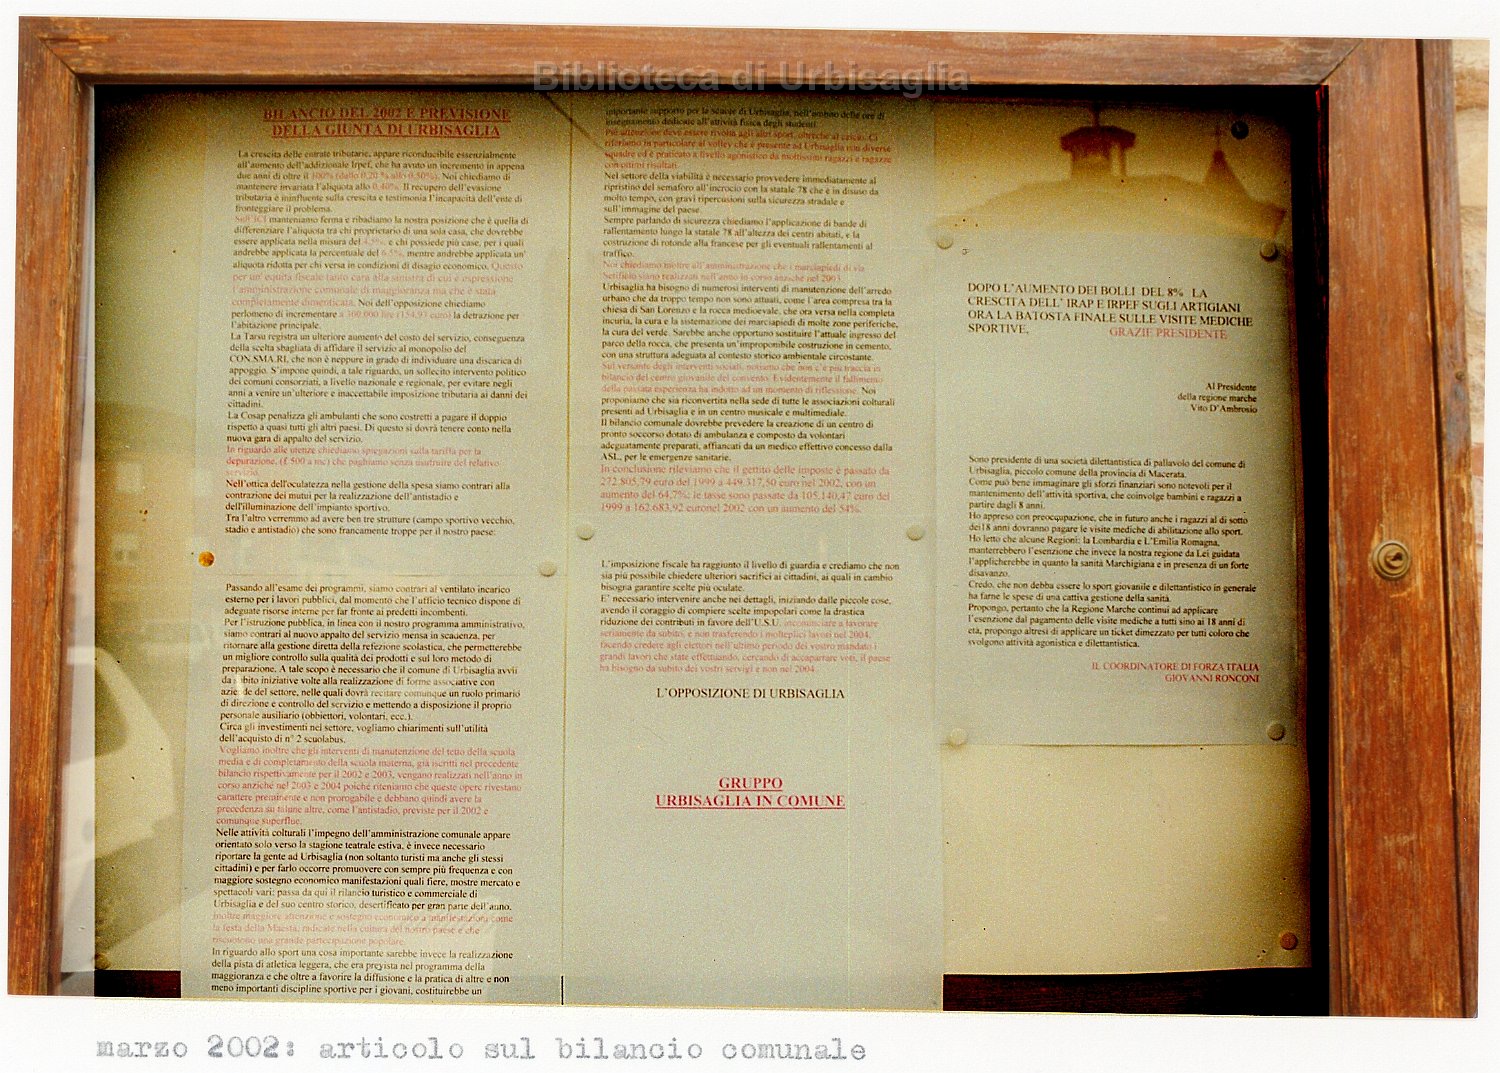 Biblioteca di Urbisaglia
BILANCIO DEL 2002 E PREVISIONE
DELLA GIUNTA DI URBISAGLIA
La crescita delle entrate tributarie, appare riconducibile essenzialmente
all'aumento dell'addizionale Irpef, che ha avuto un incremento in appena
due anni di oltre il 100% (dallo 0,20 % allo 0,50%). Noi chiediamo di
mantenere invariata l'aliquota allo 0,40%. Il recupero dell'evasione
tributaria è ininfluente sulla crescita e testimonia l'incapacità dell'ente di
fronteggiare il problema.
Sull'ICI manteniamo ferma e ribadiamo la nostra posizione che è quella di
differenziare l'aliquota tra chi proprietario di una sola casa, che dovrebbe
essere applicata nella misura del 4,5%, e chi possiede più case, per i quali
andrebbe applicata la percentuale del 6,5%, mentre andrebbe applicata un'
aliquota ridotta per chi versa in condizioni di disagio economico. Questo
per un' equità fiscale tanto cara alla sinistra di cui è espressione
l'amministrazione comunale di maggioranza ma che è stata
completamente dimenticata. Noi dell'opposizione chiediamo
perlomeno di incrementare a 300.000 lire (154,93 euro) la detrazione per
l'abitazione principale.
La Tarsu registra un ulteriore aumento del costo del servizio, conseguenza
della scelta sbagliata di affidare il servizio al monopolio del
CON.SMA.RI, che non è neppure in grado di individuare una discarica di
appoggio. S'impone quindi, a tale riguardo, un sollecito intervento politico
dei comuni consorziati, a livello nazionale e regionale, per evitare negli
anni a venire un'ulteriore e inaccettabile imposizione tributaria ai danni dei
cittadini.
La Cosap penalizza gli ambulanti che sono costretti a pagare il doppio
rispetto a quasi tutti gli altri paesi. Di questo si dovrà tenere conto nella
nuova gara di appalto del servizio.
In riguardo alle utenze chiediamo spiegazioni sulla tariffa per la
depurazione, (£ 500 a mc) che paghiamo senza usufruire del relativo
servizio.
Nell'ottica dell'oculatezza nella gestione della spesa siamo contrari alla
contrazione dei mutui per la realizzazione dell'antistadio e
dell'illuminazione dell'impianto sportivo.
Tra l'altro verremmo ad avere ben tre strutture (campo sportivo vecchio,
stadio e antistadio) che sono francamente troppe per il nostro paese.
Passando all'esame dei programmi, siamo contrari al ventilato incarico
esterno per i lavori pubblici, dal momento che l'ufficio tecnico dispone di
adeguate risorse interne per far fronte ai predetti incombenti.
Per l'istruzione pubblica, in linea con il nostro programma amministrativo,
siamo contrari al nuovo appalto del servizio mensa in scadenza, per
ritornare alla gestione diretta della refezione scolastica, che permetterebbe
un migliore controllo sulla qualità dei prodotti e sul loro metodo di
preparazione. A tale scopo è necessario che il comune di Urbisaglia avvii
da subito iniziative volte alla realizzazione di forme associative con
aziende del settore, nelle quali dovrà recitare comunque un ruolo primario
di direzione e controllo del servizio e mettendo a disposizione il proprio
personale ausiliario (obbiettori, volontari, ecc.).
Circa gli investimenti nel settore, vogliamo chiarimenti sull'utilità
dell'acquisto di n° 2 scuolabus.
Vogliamo inoltre che gli interventi di manutenzione del tetto della scuola
media e di completamento della scuola materna, già iscritti nel precedente
bilancio rispettivamente per il 2002 e 2003, vengano realizzati nell'anno in
corso anziché nel 2003 e 2004 poiché riteniamo che queste opere rivestano
carattere preminente e non prorogabile e debbano quindi avere la
precedenza su talune altre, come l'antistadio, previste per il 2002 e
comunque superflue.
Nelle attività colturali l'impegno dell'amministrazione comunale appare
orientato solo verso la stagione teatrale estiva, è invece necessario
riportare la gente ad Urbisaglia (non soltanto turisti ma anche gli stessi
cittadini) e per farlo occorre promuovere con sempre più frequenza e con
maggiore sostegno economico manifestazioni quali fiere, mostre mercato e
spettacoli vari: passa da qui il rilancio turistico e commerciale di
Urbisaglia e del suo centro storico, desertificato per gran parte dell'anno.
Inoltre maggiore attenzione e sostegno economico a manifestazioni come
la festa della Maestà, radicate nella cultura del nostro paese e che
riscuotono una grande partecipazione popolare.
In riguardo allo sport una cosa importante sarebbe invece la realizzazione
della pista di atletica leggera, che era prevista nel programma della
maggioranza e che oltre a favorire la diffusione e la pratica di altre e non
meno importanti discipline sportive per i giovani, costituirebbe un
importante supporto per le scuole di Urbisaglia, nell'ambito delle ore di
insegnamento dedicate all'attività fisica degli studenti.
Più attenzione deve essere rivolta agli altri sport, oltreché al calcio. Ci
riferiamo in particolare al volley che è presente ad Urbisaglia con diverse
squadre ed è praticato a livello agonistico da moltissimi ragazzi e ragazze
con ottimi risultati.
Nel settore della viabilità è necessario provvedere immediatamente al
ripristino del semaforo all'incrocio con la statale 78 che è in disuso da
molto tempo, con gravi ripercussioni sulla sicurezza stradale e
sull'immagine del paese.
Sempre parlando di sicurezza chiediamo l'applicazione di bande di
rallentamento lungo la statale 78 all'altezza dei centri abitati, e la
costruzione di rotonde alla francese per gli eventuali rallentamenti al
traffico.
Noi chiediamo inoltre all'amministrazione che i marciapiedi di via
Settifidio siano realizzati nell'anno in corso anziché nel 2003.
Urbisaglia ha bisogno di numerosi interventi di manutenzione dell'arredo
urbano che da troppo tempo non sono attuati, come l'area compresa tra la
chiesa di San Lorenzo e la rocca medioevale, che ora versa nella completa
incuria, la cura e la sistemazione dei marciapiedi di molte zone periferiche,
la cura del verde. Sarebbe anche opportuno sostituire l'attuale ingresso del
parco della rocca, che presenta un'improponibile costruzione in cemento,
con una struttura adeguata al contesto storico ambientale circostante.
Sul versante degli interventi sociali, notiamo che non c'è più traccia in
bilancio del centro giovanile del convento. Evidentemente il fallimento
della passata esperienza ha indotto ad un momento di riflessione. Noi
proponiamo che sia riconvertita nella sede di tutte le associazioni colturali
presenti ad Urbisaglia e in un centro musicale e multimediale.
Il bilancio comunale dovrebbe prevedere la creazione di un centro di
pronto soccorso dotato di ambulanza e composto da volontari
adeguatamente preparati, affiancati da un medico effettivo concesso dalla
ASL, per le emergenze sanitarie.
In conclusione rileviamo che il gettito delle imposte è passato da
272.805,79 euro del 1999 a 449.317,50 euro nel 2002, con un
aumento del 64,7%; le tasse sono passate da 105.140,47 euro del
1999 a 162.683,92 euronel 2002 con un aumento del 54%.
L'imposizione fiscale ha raggiunto il livello di guardia e crediamo che non
sia più possibile chiedere ulteriori sacrifici ai cittadini, ai quali in cambio
bisogna garantire scelte più oculate.
E' necessario intervenire anche nei dettagli, iniziando dalle piccole cose,
avendo il coraggio di compiere scelte impopolari come la drastica
riduzione dei contributi in favore dell'U.S.U. incominciare a lavorare
seriamente da subito, e non trasferendo i molteplici lavori nel 2004,
facendo credere agli elettori nell'ultimo periodo dei vostro mandato i
grandi lavori che state effettuando, cercando di accaparrare voti, il paese
ha bisogno da subito dei vostri servigi e non nel 2004.
L'OPPOSIZIONE DI URBISAGLIA
GRUPPO
URBISAGLIA IN COMUNE
DOPO L'AUMENTO DEI BOLLI DEL 8% LA
CRESCITA DELL' IRAP E IRPEF SUGLI ARTIGIANI
ORA LA BATOSTA FINALE SULLE VISITE MEDICHE
SPORTIVE. GRAZIE PRESIDENTE
Al Presidente
della regione marche
Vito D'Ambrosio
Sono presidente di una società dilettantistica di pallavolo del comune di
Urbisaglia, piccolo comune della provincia di Macerata.
Come può bene immaginare gli sforzi finanziari sono notevoli per il
mantenimento dell'attività sportiva, che coinvolge bambini e ragazzi a
partire dagli 8 anni.
Ho appreso con preoccupazione, che in futuro anche i ragazzi al di sotto
dei18 anni dovranno pagare le visite mediche di abilitazione allo sport.
Ho letto che alcune Regioni: la Lombardia e L'Emilia Romagna,
manterrebbero l'esenzione che invece la nostra regione da Lei guidata
l'applicherebbe in quanto la sanità Marchigiana e in presenza di un forte
disavanzo.
Credo, che non debba essere lo sport giovanile e dilettantistico in generale
ha farne le spese di una cattiva gestione della sanità.
Propongo, pertanto che la Regione Marche continui ad applicare
l'esenzione dal pagamento delle visite mediche a tutti sino ai 18 anni di
età, propongo altresì di applicare un ticket dimezzato per tutti coloro che
svolgono attività agonistica e dilettantistica.
IL COORDINATORE DI FORZA ITALIA
GIOVANNI RONCONI
marzo 2002: articolo sul bilancio comunale